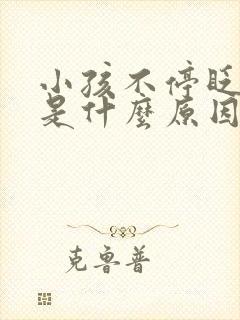 小孩不停眨
是什麼原因
克鲁普